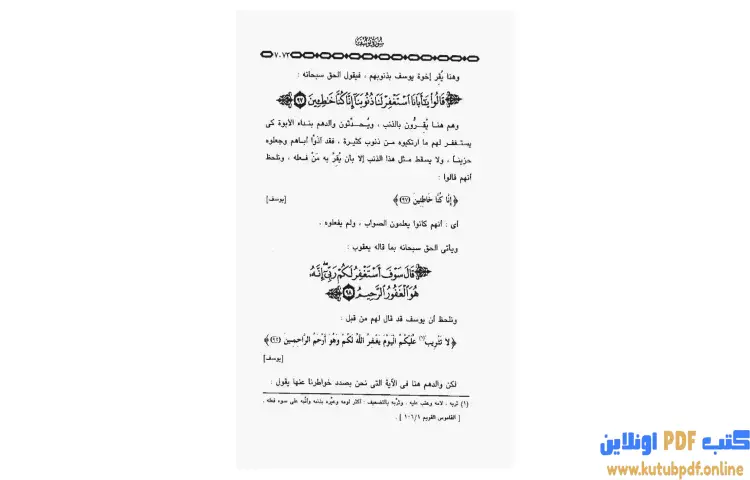 سورة يوسف
٧٠٧٣
وهنا يُقِر إخوة يوسف بذنوبهم ، فيقول الحق سبحانه :
﴿ قَالُوا۟ يَـٰٓأَبَانَا ٱسْتَغْفِرْ لَنَا ذُنُوبَنَآ إِنَّا كُنَّا خَـٰطِـِٔينَ ٩٧ ﴾
وهم هنا يُقِرُّون بالذنب ، ويُحدِّثون والدهم بنداء الأبوة كى
يستغفر لهم ما ارتكبوه من ذنوب كثيرة ، فقد آذوْا أباهم وجعلوه
حزيناً ، ولا يسقط مثل هذا الذنب إلا بأن يُقِرَّ به مَنْ فعله ، ونلحظ
أنهم قالوا :
﴿ إِنَّا كُنَّا خَاطِئِينَ (٩٧) ﴾ [يوسف]
أى : أنهم كانوا يعلمون الصواب ، ولم يفعلوه .
ويأتى الحق سبحانه بما قاله يعقوب :
﴿ قَالَ سَوْفَ أَسْتَغْفِرُ لَكُمْ رَبِّىٓ إِنَّهُۥ
هُوَ ٱلْغَفُورُ ٱلرَّحِيمُ ٩٨ ﴾
ونلحظ أن يوسف قد قال لهم من قبل :
﴿ لا تَثْرِيبَ(١) عَلَيْكُمُ الْيَوْمَ يَغْفِرُ اللَّهُ لَكُمْ وَهُوَ أَرْحَمُ الرَّاحِمِينَ (٩٢) ﴾
[يوسف]
لكن والدهم هنا فى الآية التى نحن بصدد خواطرنا عنها يقول :
(١) ثربه : لامه وعتب عليه . وثرَّبه بالتضعيف : أكثر لومه وعيَّره بذنبه وأنَّبه على سوء فعله .
[ القاموس القويم ١٠٦/١ ] .
كتب PDF اونلاين
www.kutubpdf.online